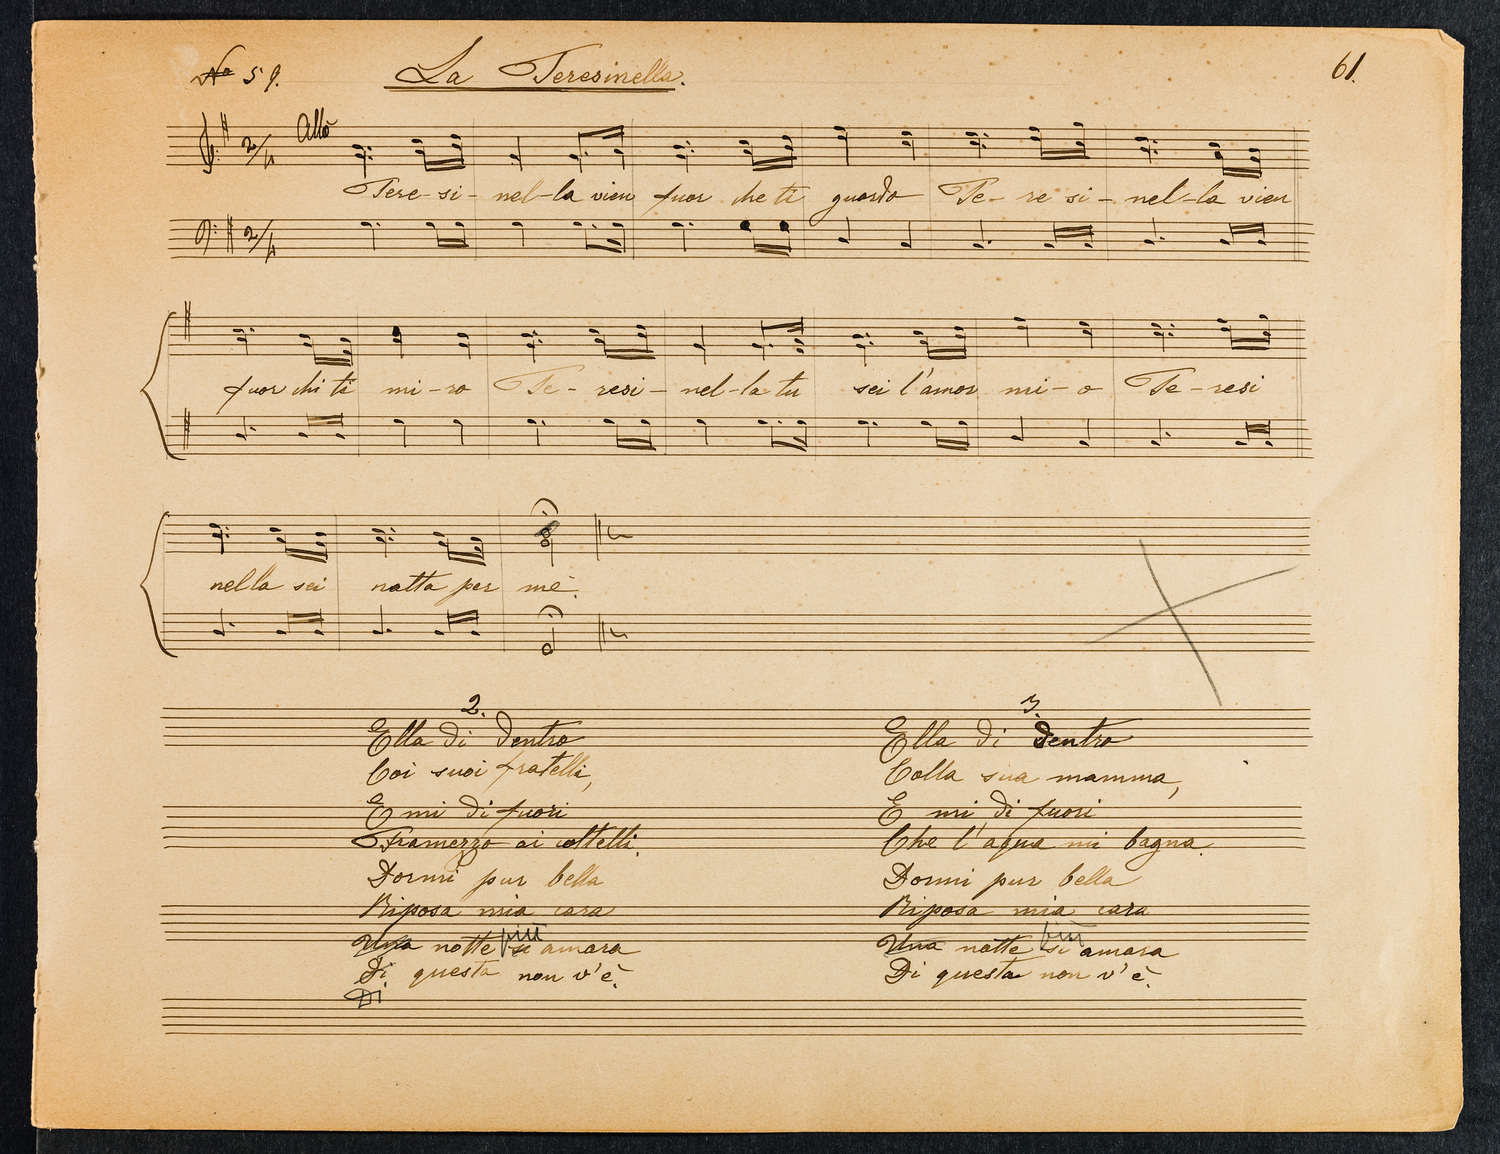 No 59.
La Teresinella.
61.
Allo
2/4
Tere-si- nel-la vien fuor che ti guardo Te- re si- nel-la vien
2/4
fuor chi ti mi-ro Te- resi- nel-la tu sei l'amor mi-o Te-resi
nella sei natta per me.
2.
Ella di dentro
Coi suoi fratelli,
E mi di fuori
Framezzo ai coltelli.
Dormi pur bella
Riposa mia cara
più
Una notte si amara
Di questa non v'è.
Di
3.
Ella di dentro
Colla sua mamma,
E mi di fuori
Che l'aqua mi bagna.
Dormi pur bella
Riposa mia cara
più
Una notte si amara
Di questa non v'è.